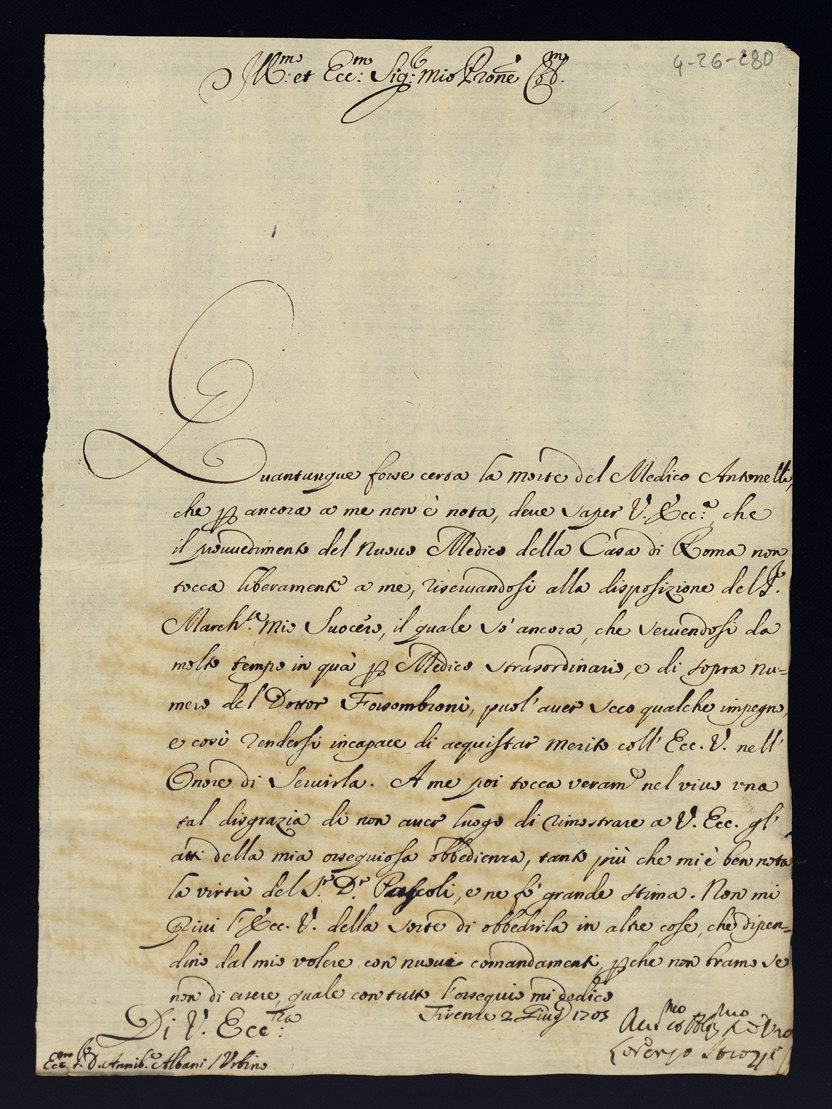 4-26-280
Ill.mo et Ecc.mo Sig.r mio Prone Col.mo
Quantunque fosse certa la morte del Medico Antonelli,
che p ancora a me non è nota, deve saper V. Ecc.a, che
il provvedimento del nuovo Medico della Casa di Roma non
tocca liberamente a me, riservandosi alla disposizione del S.r
March.se mio Suocero, il quale sò ancora, che servendosi da
molto tempo in quà p Medico straordinario, e di sopra nu=
mero del Dottor Fossombroni, puol' aver seco qualche impegno,
e così rendersi incapace di acquistar merito coll' Ecc. V. nell'
Onore di Servirla. A me poi tocca veram.e nel vivo una
tal disgrazia di non aver luogo di rimostrare a V. Ecc. gl'
atti della mia ossequiosa obbedienza, tanto più che mi è ben nota
la virtù del S.r D.r Pascoli, e ne fò grande stima. Non mi
privi l'Ecc. V. della sorte di obbedirla in altre cose, che dipen=
dino dal mio volere con nuovi comandamenti, pche non bramo se
non di essere, quale con tutto l'ossequio mi dedico
Di V. Ecc.za
Firenze 2 Giug 1703
Lorenzo Strozzi
Ecc.mo S.r D. Annib.e Albani / Urbino